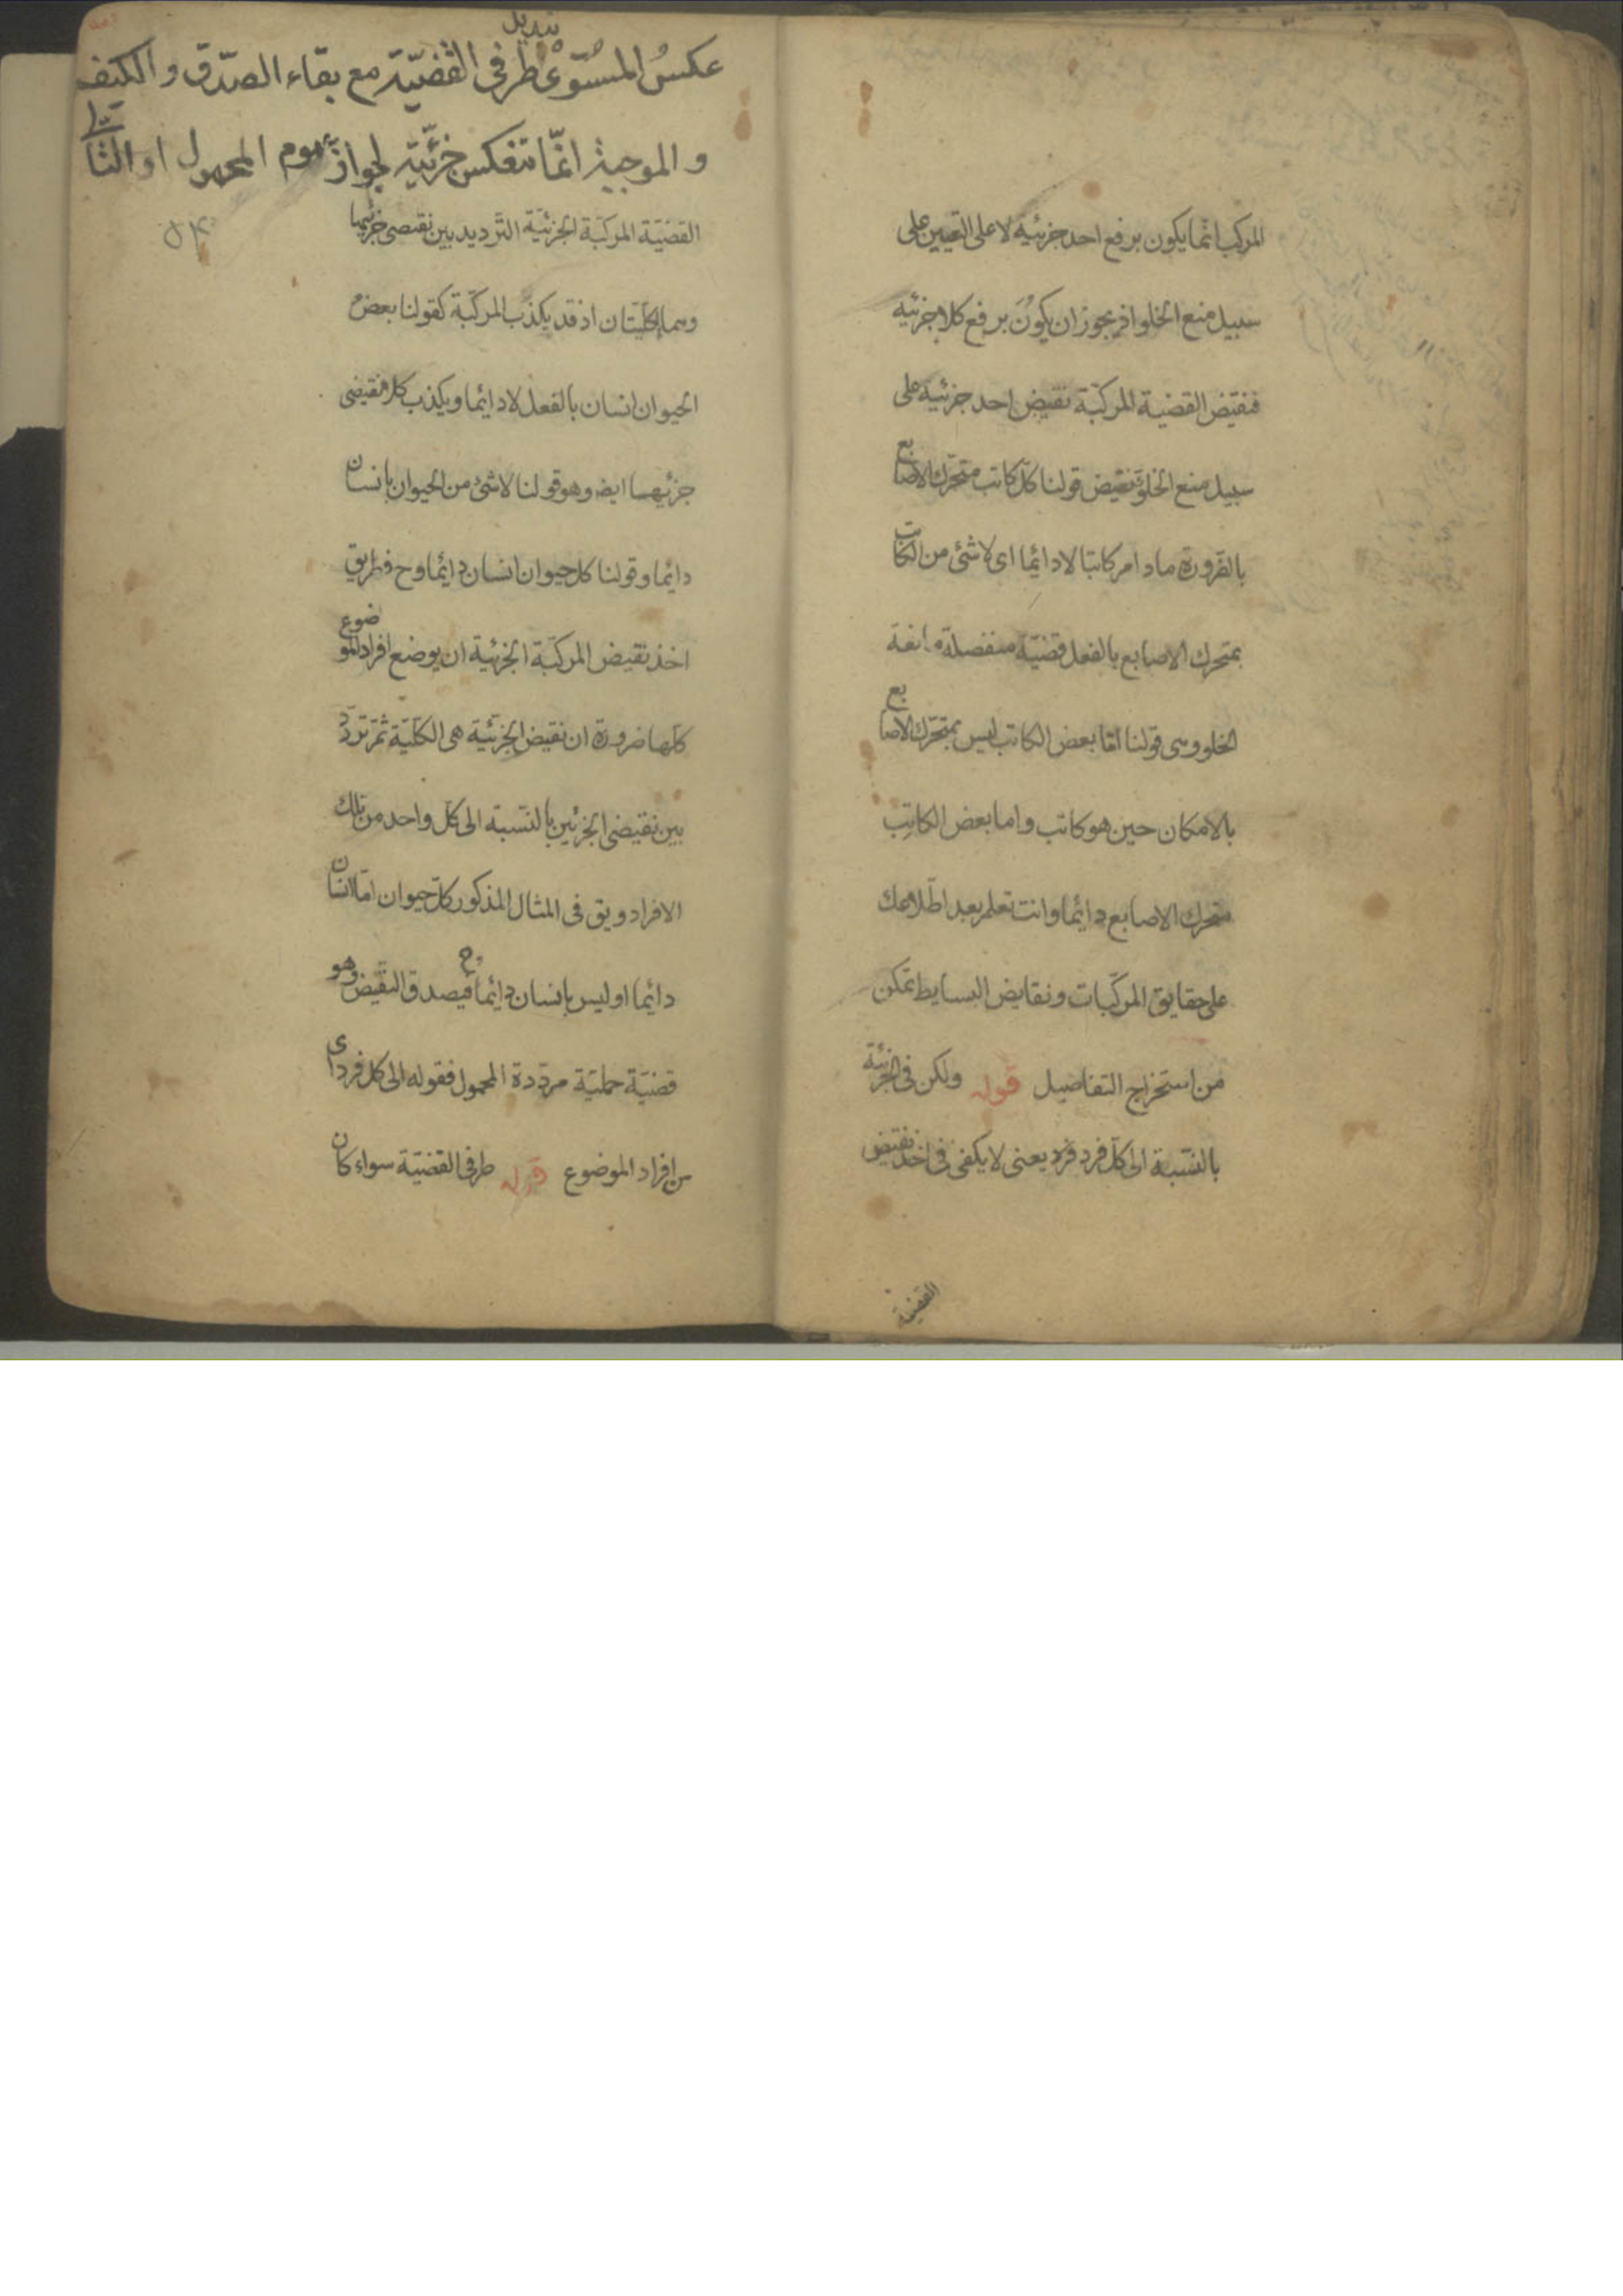 المركب انما يكون برفع احد جزئيه لا على التعيين على
سبيل منع الخلو اذ يجوز ان يكون برفع كلا جزئيه
فنقيض القضية المركبة نقيض احد جزئيه على
سبيل منع الخلو فنقيض قولنا كل كاتب متحرك الاصابع
بالضرورة مادام كاتبا لا دائما اى لا شئ من الكاتب
بمتحرك الاصابع بالفعل قضية منفصلة مانعة
الخلو وهى قولنا اما بعض الكاتب ليس بمتحرك الاصابع
بالامكان حين هو كاتب واما بعض الكاتب
متحرك الاصابع دائما وانت تعلم بعد اطلاعك
على حقايق المركبات ونقايض البسايط تمكن
من استخراج التفاصيل قوله ولكن فى الجزئية
بالنسبة الى كل فرد فرد يعنى لا يكفى فى اخذ نقيض
القضية
عكس المستوى تبديل طرفى القضية مع بقاء الصدق و الكيف
و الموجبة انما تنعكس جزئية لجواز عموم المحمول او التالى
القضية المركبة الجزئية الترديد بين نقيضى جزئيها
وهما الكليتان اذ قد يكذب المركبة كقولنا بعض
الحيوان انسان بالفعل لا دائما ويكذب كلا نقيضى
جزئيهما ايض وهو قولنا لا شئ من الحيوان بانسان
دائما وقولنا كل حيوان انسان دائما وح فطريق
اخذ نقيض المركبة الجزئية ان يوضع افراد الموضوع
كلها ضرورة ان نقيض الجزئية هى الكلية ثم تردد
بين نقيضى الجزئين بالنسبة الى كل واحد من تلك
الافراد ويق فى المثال المذكور كل حيوان اما انسان
دائما او ليس بانسان دائما وح فيصدق النقيض وهو
قضية حملية مرددة المحمول فقوله الى كل فرد اى
من افراد الموضوع قوله طرفى القضية سواء كان